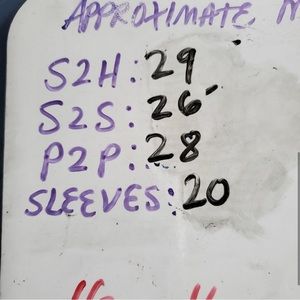 APPROXIMATE M
S2H: 29
S2S: 26
P2P: 28
SLEEVES: 20